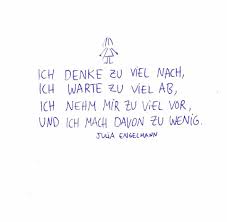 ICH DENKE ZU VIEL NACH,
ICH WARTE ZU VIEL AB,
ICH NEHM MIR ZU VIEL VOR,
UND ICH MACH DAVON ZU WENIG.
JULIA ENGELMANN